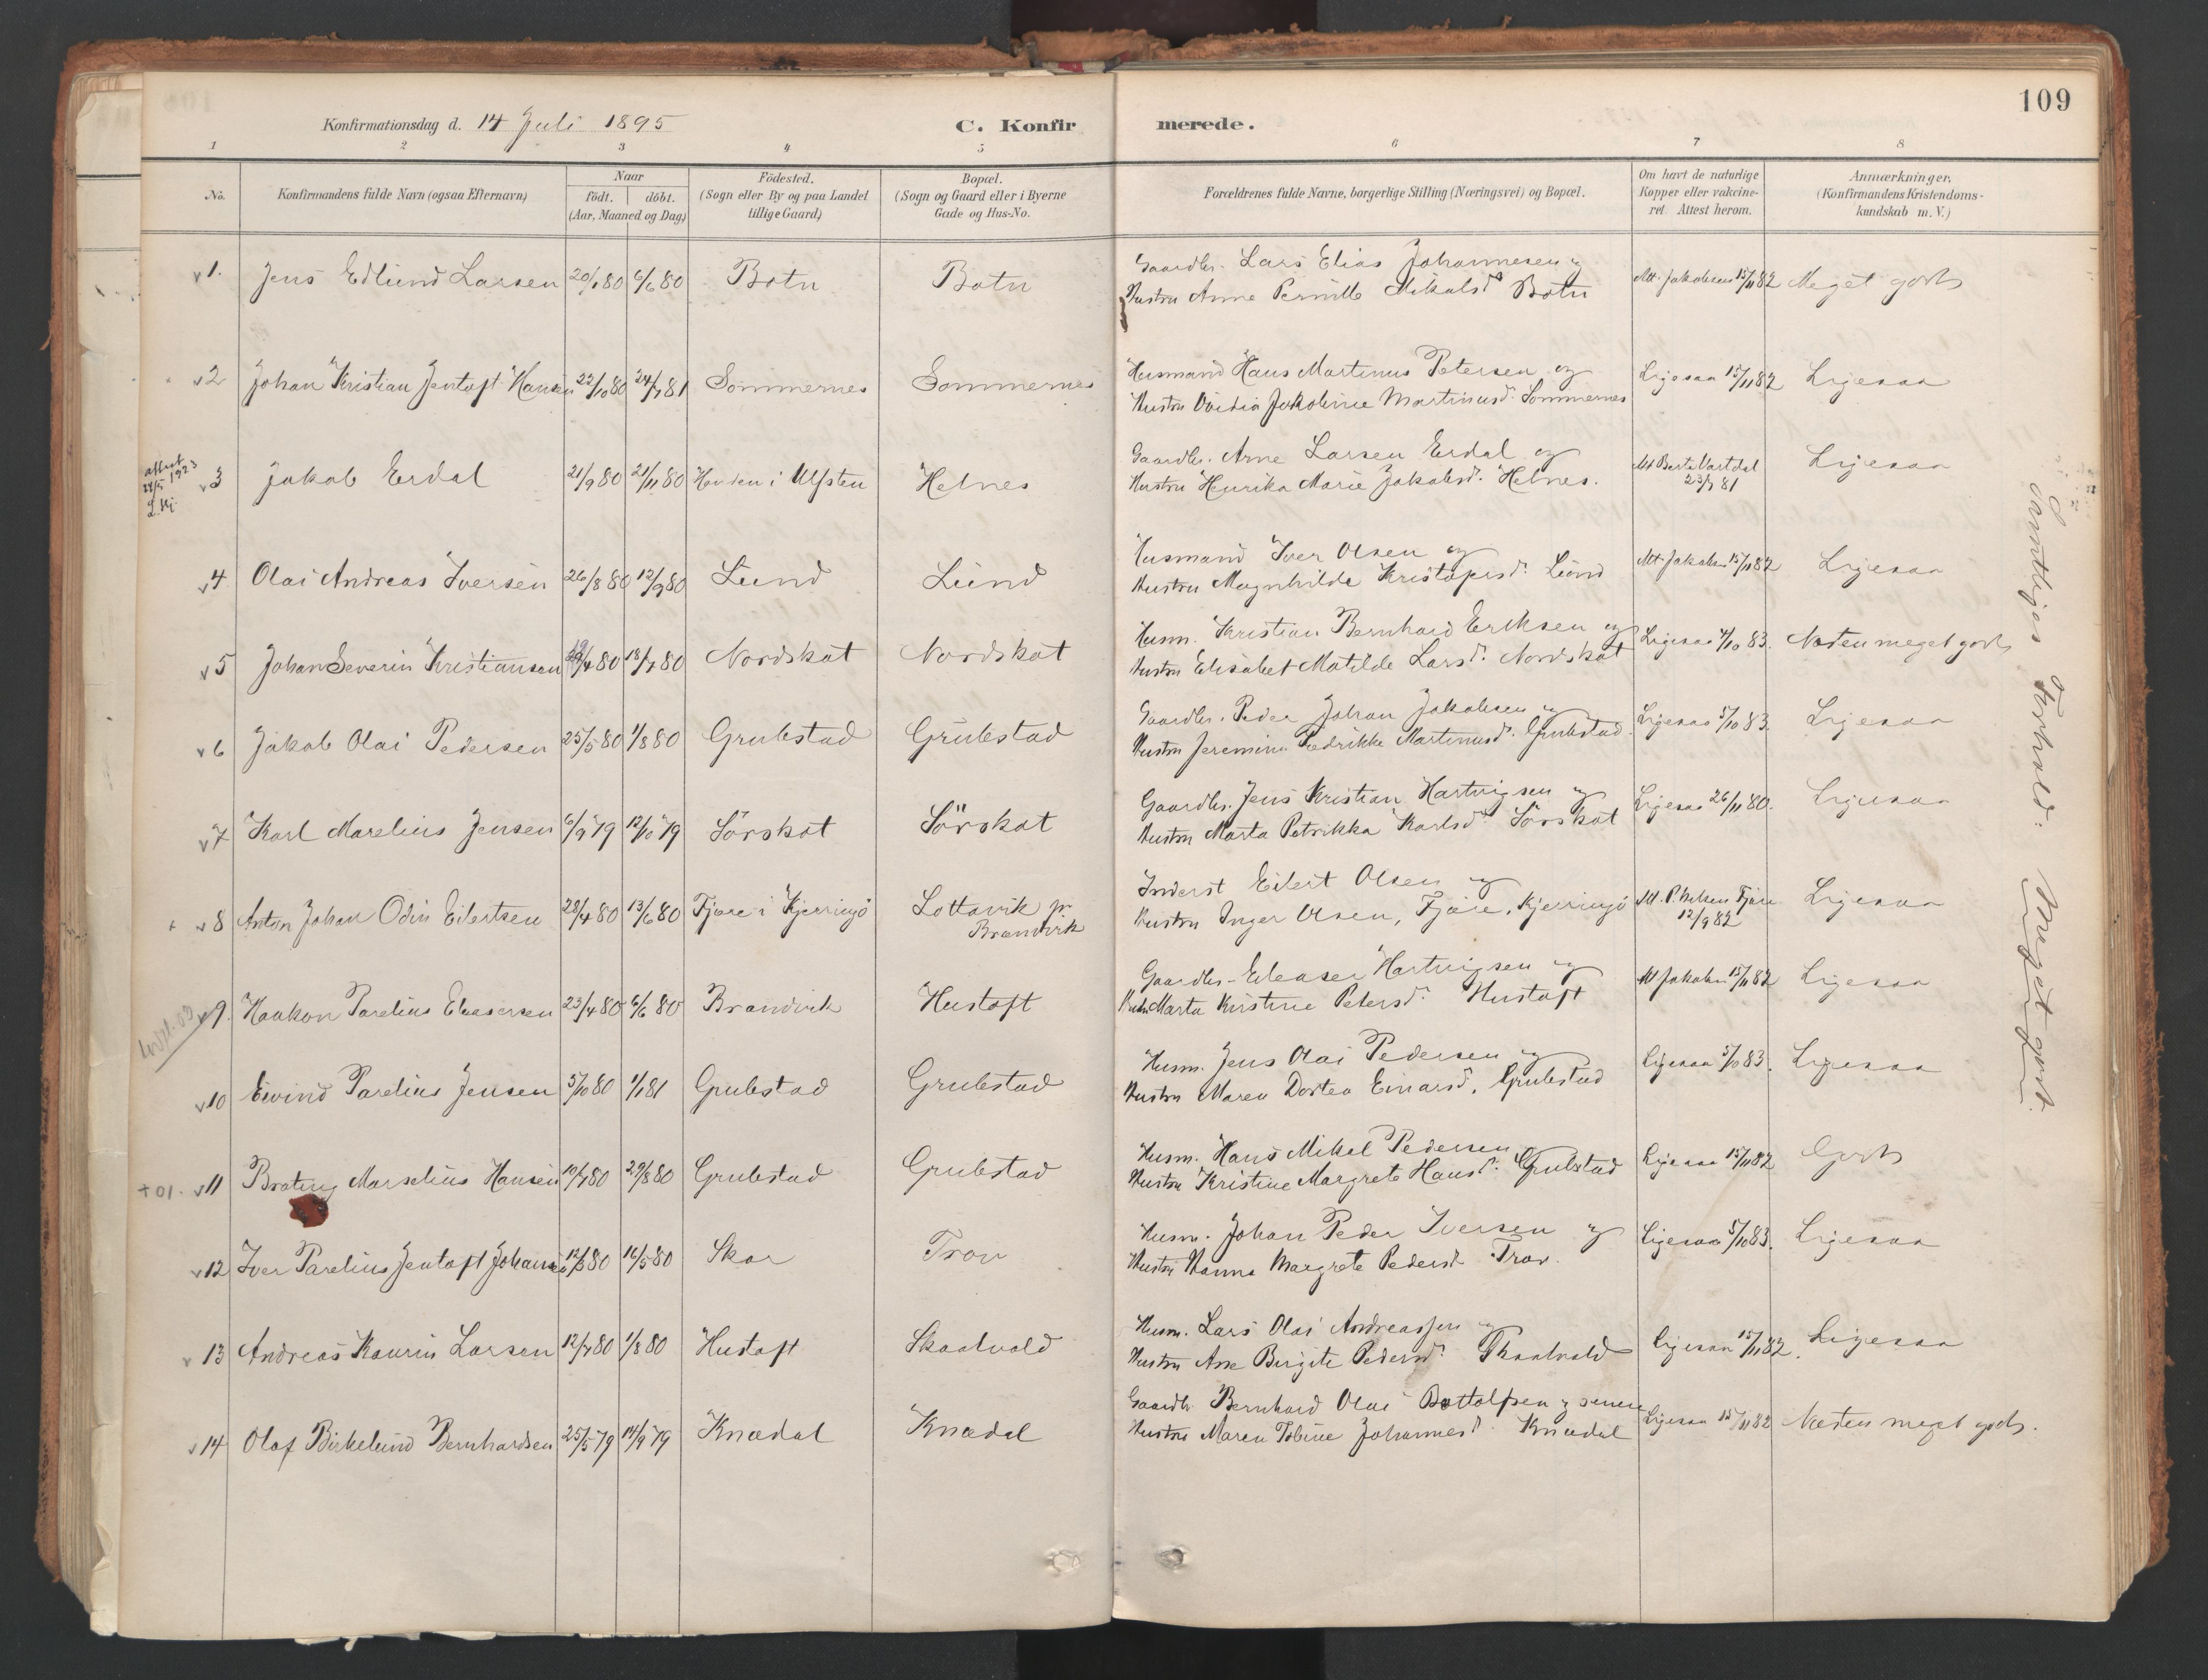 109
Konfirmationsdag d. 14 Juli 1895
C. Konfirmerede.
1 2 3 4 5 6 7 8
No. Konfirmandens fulde Navn (ogsaa Efternavn) Naar født. døbt. (Aar, Maaned og Dag) Fødested. (Sogn eller By og paa Landet tillige Gaard) Bopæl. (Sogn og Gaard eller i Byerne Gade og Hus-No. Forældrenes fulde Navne, borgerlige Stilling (Næringsvei) og Bopæl. Om havt de naturlige Kopper eller vakcineret. Attest herom. Anmærkninger. (Konfirmandens Kristendomskundskab m. V.)
v 1. Jens Edlund Larsen 20/1 80 6/6 80 Botn Botn Gaardbr. Lars Elias Johannesen og
Hustru Anne Pernille Mikalsd. Botn Att. Jakobsen 15/11 82 Meget godt
v 2 Johan Kristian Jentoft Hansen 22/10 80 24/7 81 Sommernes Sommernes Husmand Hans Martinus Petersen og
Hustru Ovidia Jakobine Martinusd. Sommernes Ligesaa 15/11 82 Ligesaa
attest 24/5 1923
v 3 Jakob Erdal 21/9 80 21/11 80 i Ulfsten Helnes Gaardbr. Arne Larsen Erdal og
Hustru Henrika Marie Jakobsd. Helnes. Att Berte Vartdal 23/7 81 Ligesaa
v 4 Olai Andreas Iversen 26/8 80 12/9 80 Lund Lund Husmand Iver Olsen og
Hustru Magnhilde Kristofersd. Lund Att. Jakobsen 15/11 82 Ligesaa
v 5 Johan Severin Kristiansen 80 18/7 80 Nordskot Nordskot Husm. Kristian Bernhard Eriksen og
Hustru Elisabet Matilde Larsd. Nordskot Ligesaa 4/10 83. Næsten meget godt
v 6 Jakob Olai Pedersen 25/5 80 1/8 80 Grubstad Grubstad Gaardbr. Peder Johan Jakobsen og
Hustru Jeremine Fredrikke Martinusd. Grubstad. Ligesaa 5/10 83. Ligesaa
v 7 Karl Marelius Jensen 6/9 79 12/10 79 Sörskot Sörskot Gaardbr. Jens Kristian Hartvigsen og
Hustru Marta Petrikka Karlsd. Sörskot Ligesaa 26/11 80. Ligesaa
v 8 Anton Johan Odin Eilertsen 28/4 80 13/6 80 Fjære i Kjerringö Lottavik pr. Brandvik Inderst Eilert Olsen og
Hustru Inger Olsen, Fjære, Kjerringö Att. P. Nelsen Fjære 12/9 82 Ligesaa
v 9. Haakon Parelius Eleasersen 23/4 80 6/6 80 Brandvik Hustoft Gaardbr. Eleaser Hartvigsen og
Marta Kirstine Petersd. Hustoft Att Jakobsen 15/11 82 Ligesaa
v 10 Eivind Parelius Jensen 5/10 80 1/1 81 Grubstad Grubstad Husm. Jens Olai Pedersen og
Hustru Maren Dortea Einarsd. Grubstad Ligesaa 5/10 83. Ligesaa
+ 01. v 11 Marselius Hansen 10/7 80 29/8 80 Grubstad Grubstad Husm. Hans Mikal Pedersen
Hustru Kristine Margrete Hansd. Grubstad Ligesaa 15/11 82 Godt
v 12 Iver Parelius Jentoft Johansen 80 16/5 80 Skar Trov Husm. Johan Peder Iversen og
Hustru Hanna Margrete Pedersd. Trov. Ligesaa 5/10 83. Ligesaa
v 13 Andreas Kaurin Larsen 12/7 80 1/8 80 Hustoft Skaalvold Husm. Lars Olai Andreassen og
Hustru Ane Birgite Pedersd. Skaalvold Ligesaa 15/11 82. Ligesaa
v 14 Olaf Birkelund Bernhardsen 25/5 79 14/9 79 Knædal Knædal Gaardbr. Bernhard Olai Bottolfsen og
Hustru Maren Tobine Johannesd. Knædal Ligesaa 15/11 82 Næsten meget godt.
Samtliges Forhold: Meget godt.